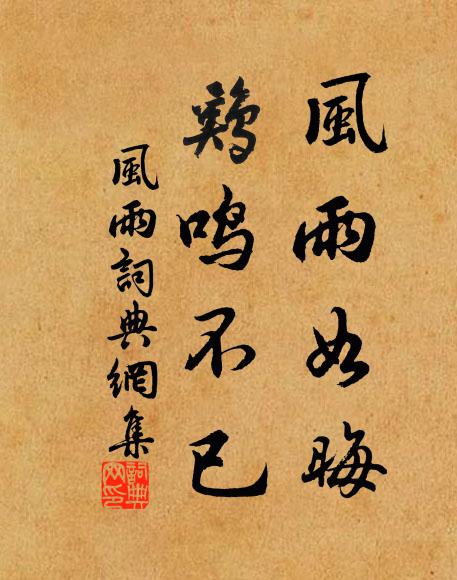 風雨如晦
鷄鳴不已
風雨詞典網集
詞典
网印